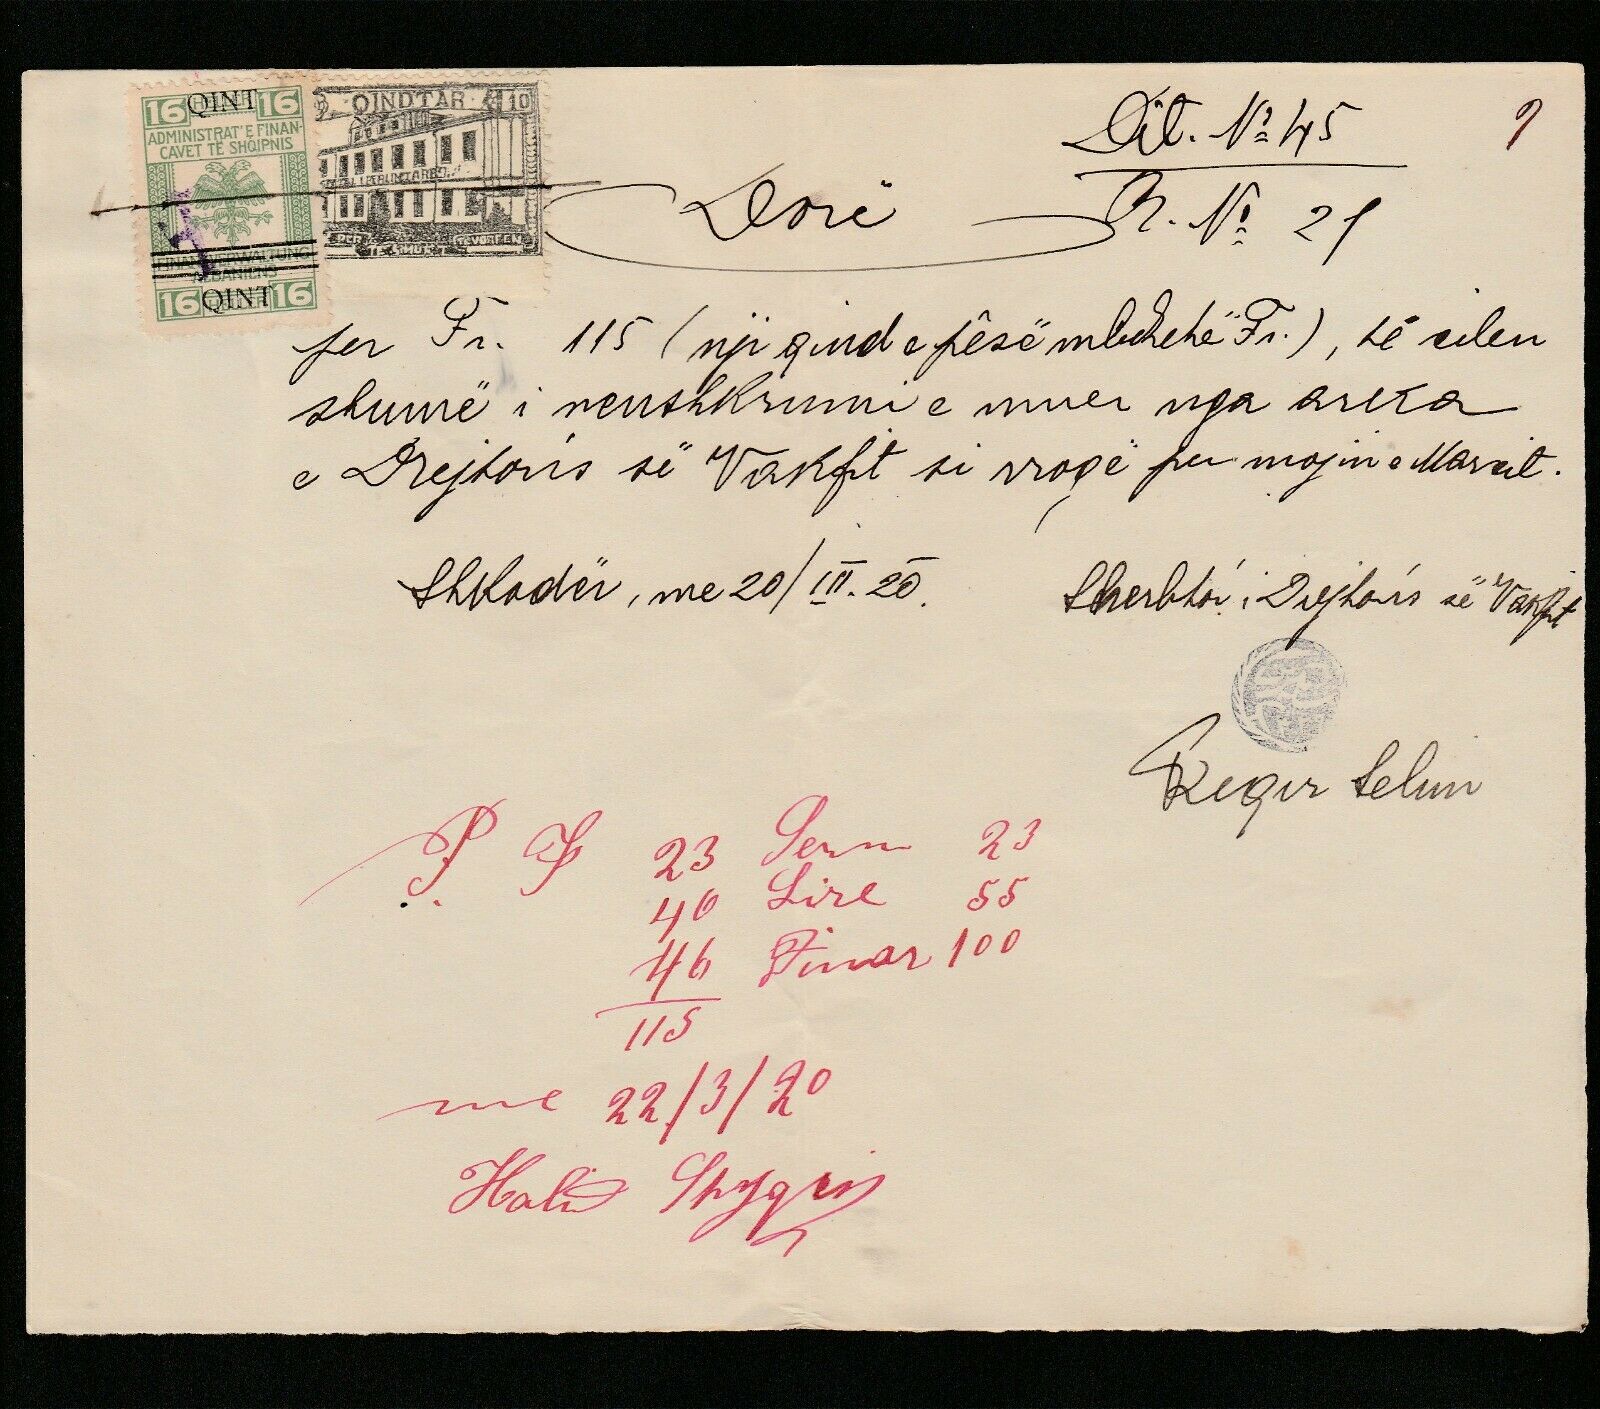 QINT
16 16
ADMINISTRAT' E FINAN-
CAVET TË SHQIPNIS
FINANZVERWALTUNG
ALBANIENS
16 16
QINT
QINDTAR 10
Dit. No 45
R. No 21
Dorë
per Fr. 115 (nji qind e pêsëmbëdhetë Fr.), të cilen
shumë i nenshkrumi e muer nga arka
e Drejtoris së Vakfit si rrogë per mojin e Marcit.
Shkodër, me 20/III. 20.
Sherbtór i Drejtoris së Vakfit
Reqir Selim
23 Serm 23
40 Lire 55
46 Dinar 100
115
me 22/3/20
Halid Shyqri